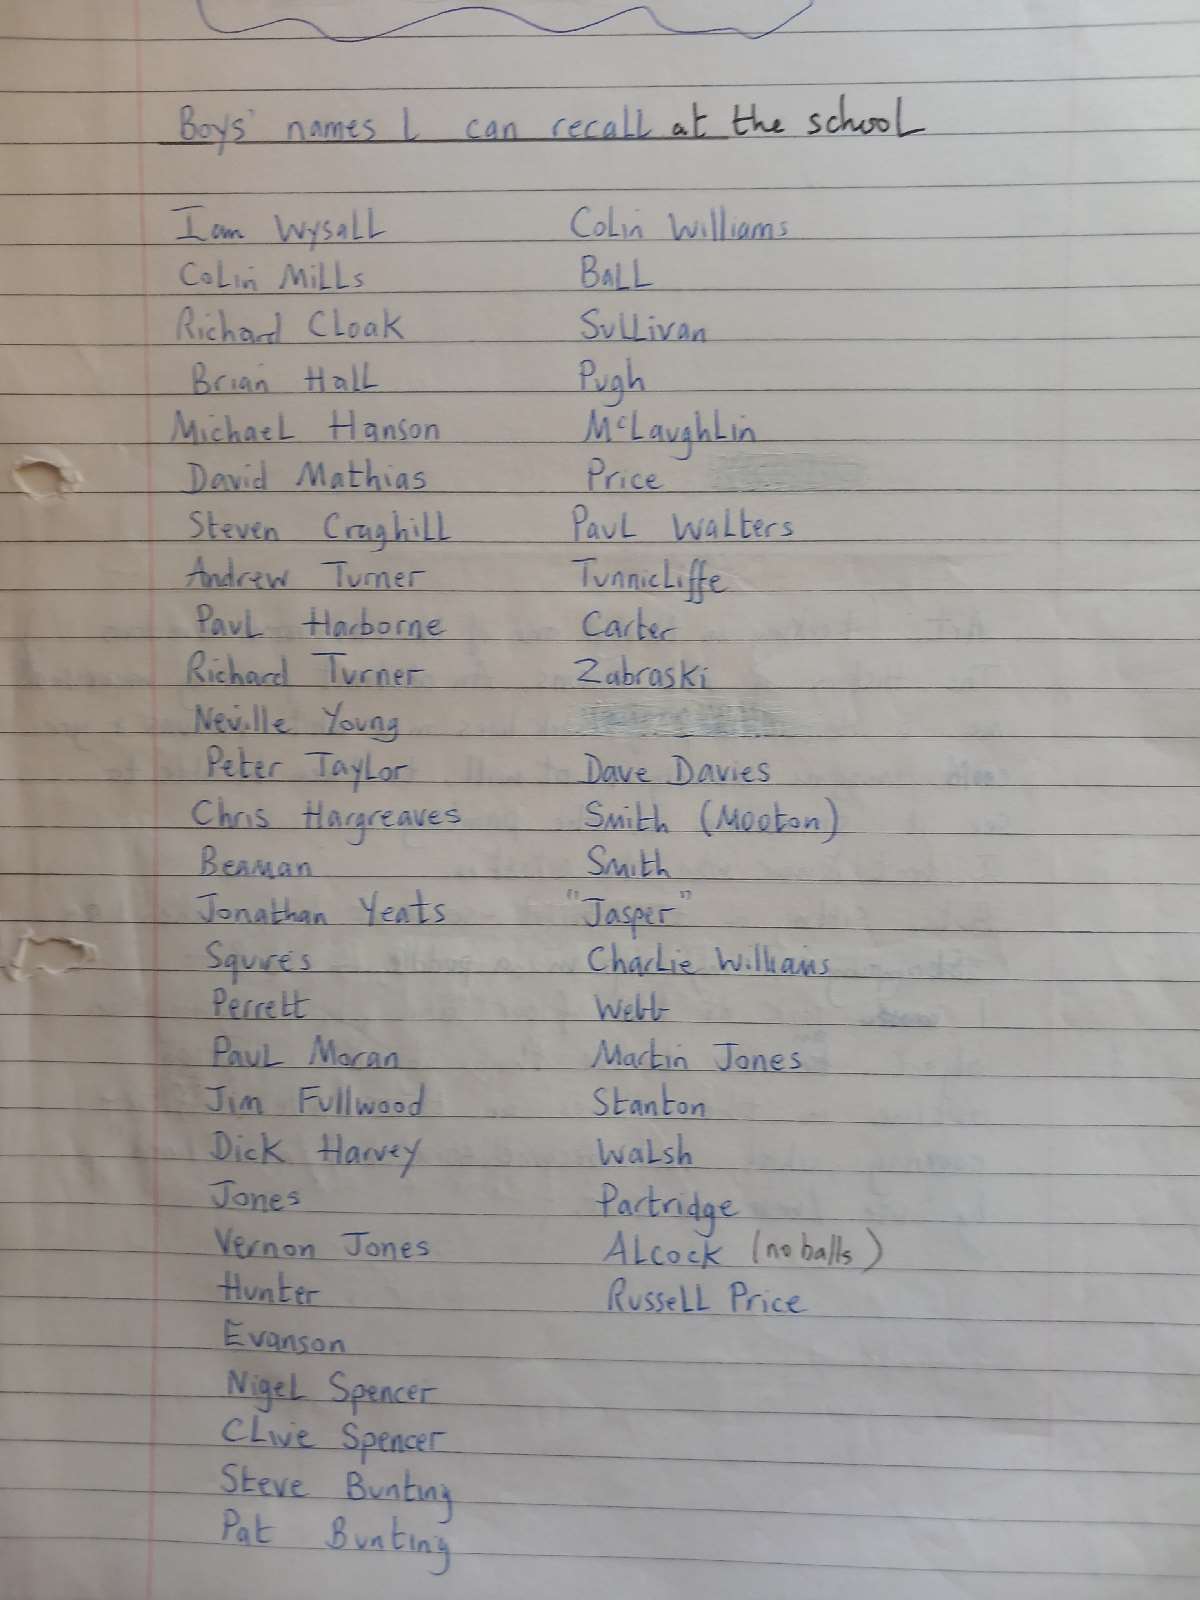 Boys' names I can recall at the school
Ian Wysall
Colin Mills
Richard Cloak
Brian Hall
Michael Hanson
David Mathias
Steven Craghill
Andrew Turner
Paul Harborne
Richard Turner
Neville Young
Peter Taylor
Chris Hargreaves
Beaman
Jonathan Yeats
Squires
Perrett
Paul Moran
Jim Fullwood
Dick Harvey
Jones
Vernon Jones
Hunter
Evanson
Nigel Spencer
Clive Spencer
Steve Bunting
Pat Bunting
Colin Williams
Ball
Sullivan
Pugh
McLaughlin
Price
Paul Walters
Tunnicliffe
Carter
Zabraski
Dave Davies
Smith (Mooton)
Smith
"Jasper"
Charlie Williams
Webb
Martin Jones
Stanton
Walsh
Partridge
Alcock (no balls)
Russell Price